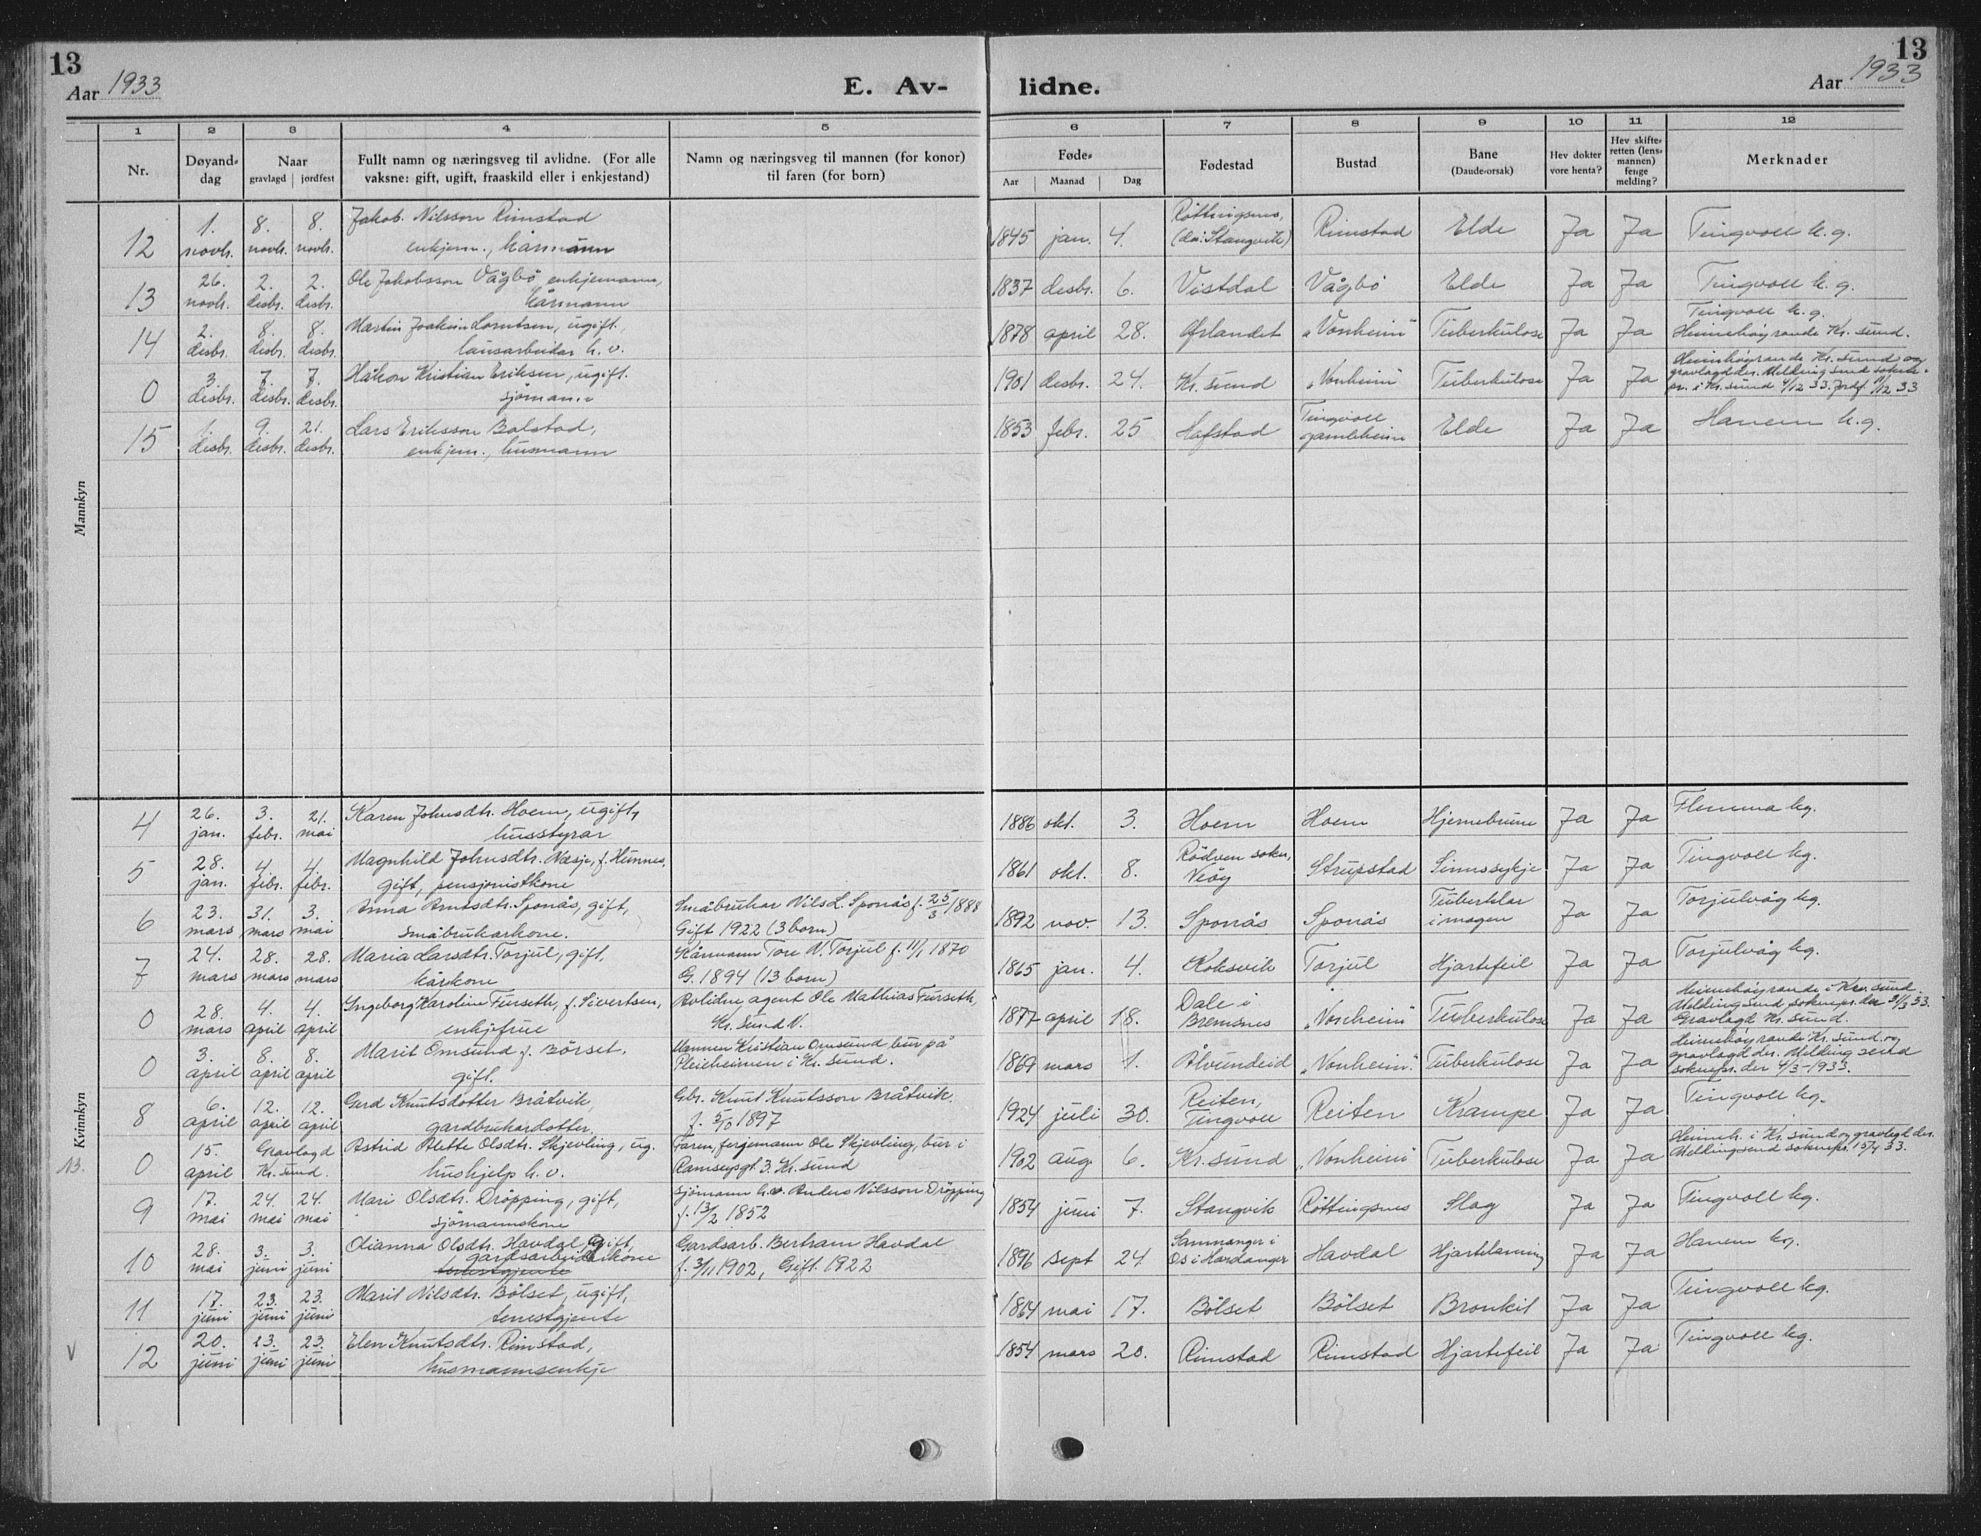 13
13
Aar 1933
E. Av-
lidne.
Aar 1933
1 2 3 4 5 6 7 8 9 10 11 12
Nr.
Døyand-
dag
Naar
gravlagd jordfest
Fullt namn og næringsveg til avlidne. (For alle
vaksne: gift, ugift, fraaskild eller i enkjestand)
Namn og næringsveg til mannen (for konor)
til faren (for born)
Føde-
Aar Maanad Dag
Fødestad
Bustad
Bane
(Daude-orsak)
Hev dokter
vore henta?
Hev skifte-
retten (lens-
mannen)
fenge
melding?
Merknader
Mannkyn
12 1. novbr. 8. novbr. 8. novbr. Jakob Nilsson Rimstad
enkjem., kårmann
1845 jan. 4. Røttingsnes, (då: Stangvik) Rimstad Elde Ja Ja Tingvoll k.g.
13 26. novbr. 2. desbr. 2. desbr. Ole Jakobsson Vågbø enkjemann,
kårmann
1837 desbr. 6. Vistdal Vågbø Elde Ja Ja Tingvoll k.g.
14 2. desbr. 8. desbr. 8. desbr. Martin Joakim Lorntsen, ugift,
lausarbeidar h.v.
1878 april 28. Ørlandet "Vonheim" Tuberkulose Ja Ja Tingvoll k.g.
Heimehøyrande Kr. sund.
0 3. desbr. 7. desbr. 7. desbr. Håkon Kristian Eriksen, ugift.
sjømann
1901 desbr. 24. Kr. sund "Vonheim" Tuberkulose Ja Ja Heimehøyrande Kr. sund og
gravlagd der. Melding send sokne-
pr. i Kr. sund 4/12 33. Jordf. 11/12 33
15 1. desbr. 9. desbr. 21. desbr. Lars Eriksson Bolstad,
enkjem., husmann
1853 febr. 25 Hafstad Tingvoll gamleheim Elde Ja Ja Hanem k.g.
Kvinnkyn
4 26. jan. 3. febr. 21. mai Karen Johnsdtr. Hoem, ugift,
husstyrar
1886 okt. 3. Hoem Hoem Hjernebrune Ja Ja Flemma kg.
5 28. jan. 4. febr. 4. febr. Magnhild Johnsdtr. Næsje, f. Hunnes,
gift, pensjonistkone
1861 okt. 8. Rødven sokn, Veøy Strupstad Sinnssykje Ja Ja Tingvoll kg.
6 23. mars 31. mars 3. mai Anna Arntsdtr. Sponås, gift,
småbrukarkone.
Småbrukar Nils L. Sponås f. 25/3 1888
Gift 1922 (3 born)
1892 nov. 13. Sponås Sponås Tuberklar i magen Ja Ja Torjulvåg kg.
7 24. mars 28. mars 28. mars Maria Larsdtr. Torjul, gift,
kårkone
Kårmann Tore N. Torjul f. 11/1 1870
G. 1894 (13 born)
1865 jan. 4. Koksvik Torjul Hjartefeil Ja Ja Torjulvåg kg.
0 28. mars 4. april 4. april Ingeborg Karoline Furseth, f. Sivertsen,
enkjefrue
Avlidne agent Ole Mathias Furseth,
Kr. Sund N.
1877 april 18. Dale i Bremsnes "Vonheim" Tuberkulose Ja Ja Heimehøyrande i Kr. sund.
Melding send soknepr. der 31/3 33.
Gravlagd Kr. sund.
0 3. april 8. april 8. april Marit Omsund f. Børset.
gift.
Mannen Kristian Omsund bur på
Pleieheimen i Kr. sund.
1869 mars 1. Ålvundeid "Vonheim". Tuberkulose Ja Ja Heimehøyrande Kr. sund og
gravlagd der. Melding send
soknepr. der 4/3-1933.
8 6. april 12. april 12. april Gerd Knutsdotter Bråtvik,
gardbrukardotter.
Gbr. Knut Knutsson Bråtvik.
1924 juli 30. Reiten, Tingvoll Reiten Krampe Ja Ja Tingvoll kg.
13. 0 15. april Gravlagd Kr. sund. Astrid Alette Olsdtr. Skjevling, ug.
hushjelp h.v.
Faren, ferjemann Ole Skjevling, bur i
Ramsøysgt. 3. Kr. sund
1902 aug 6. Kr. sund "Vonheim" Tuberkulose Ja Ja Heimeh. i Kr. sund og gravlagt der.
Melding send soknepr. 15/4 33.
9 17. mai 24. mai 24. mai Mari Olsdtr. Drøpping, gift,
sjømannskone
Sjømann h.v. Anders Nilsson Drøpping
f. 13/2 1852
1854 juni 7. Stangvik Røttingsnes Slag Ja Ja Tingvoll kg.
10 28. mai 3. juni 3. juni Olianna Olsdtr. Havdal Gift,
gardsarbeidarkone
Gardsarb. Bertram Havdal
f. 3/11 1902, Gift 1922
1896 sept 24. Samnanger i Os i Hordanger Havdal Hjartelamning Ja Ja Hanem kg.
11 17. juni 23. juni 23. juni Marit Nilsdtr. Bølset, ugift,
tenestgjente
1864 mai 17. Bølset Bølset Bronkit Ja Ja Tingvoll kg.
V 12 20. juni 23. juni 23. juni Elen Knutsdtr. Rimstad,
husmannsenkje
1854 mars 20. Rimstad Rimstad Hjartefeil Ja Ja Tingvoll kg.